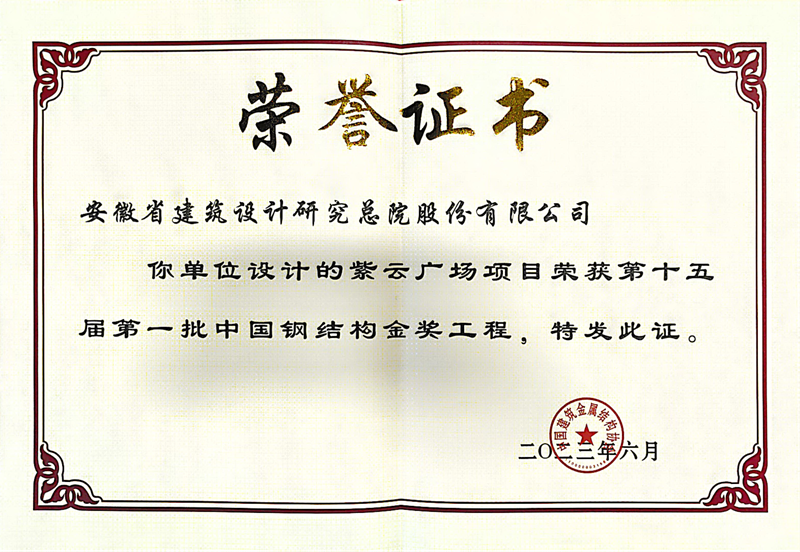 荣誉证书
安徽省建筑设计研究总院股份有限公司
你单位设计的紫云广场项目荣获第十五
届第一批中国钢结构金奖工程，特发此证。
中国建筑金属结构协会
二〇二三年六月